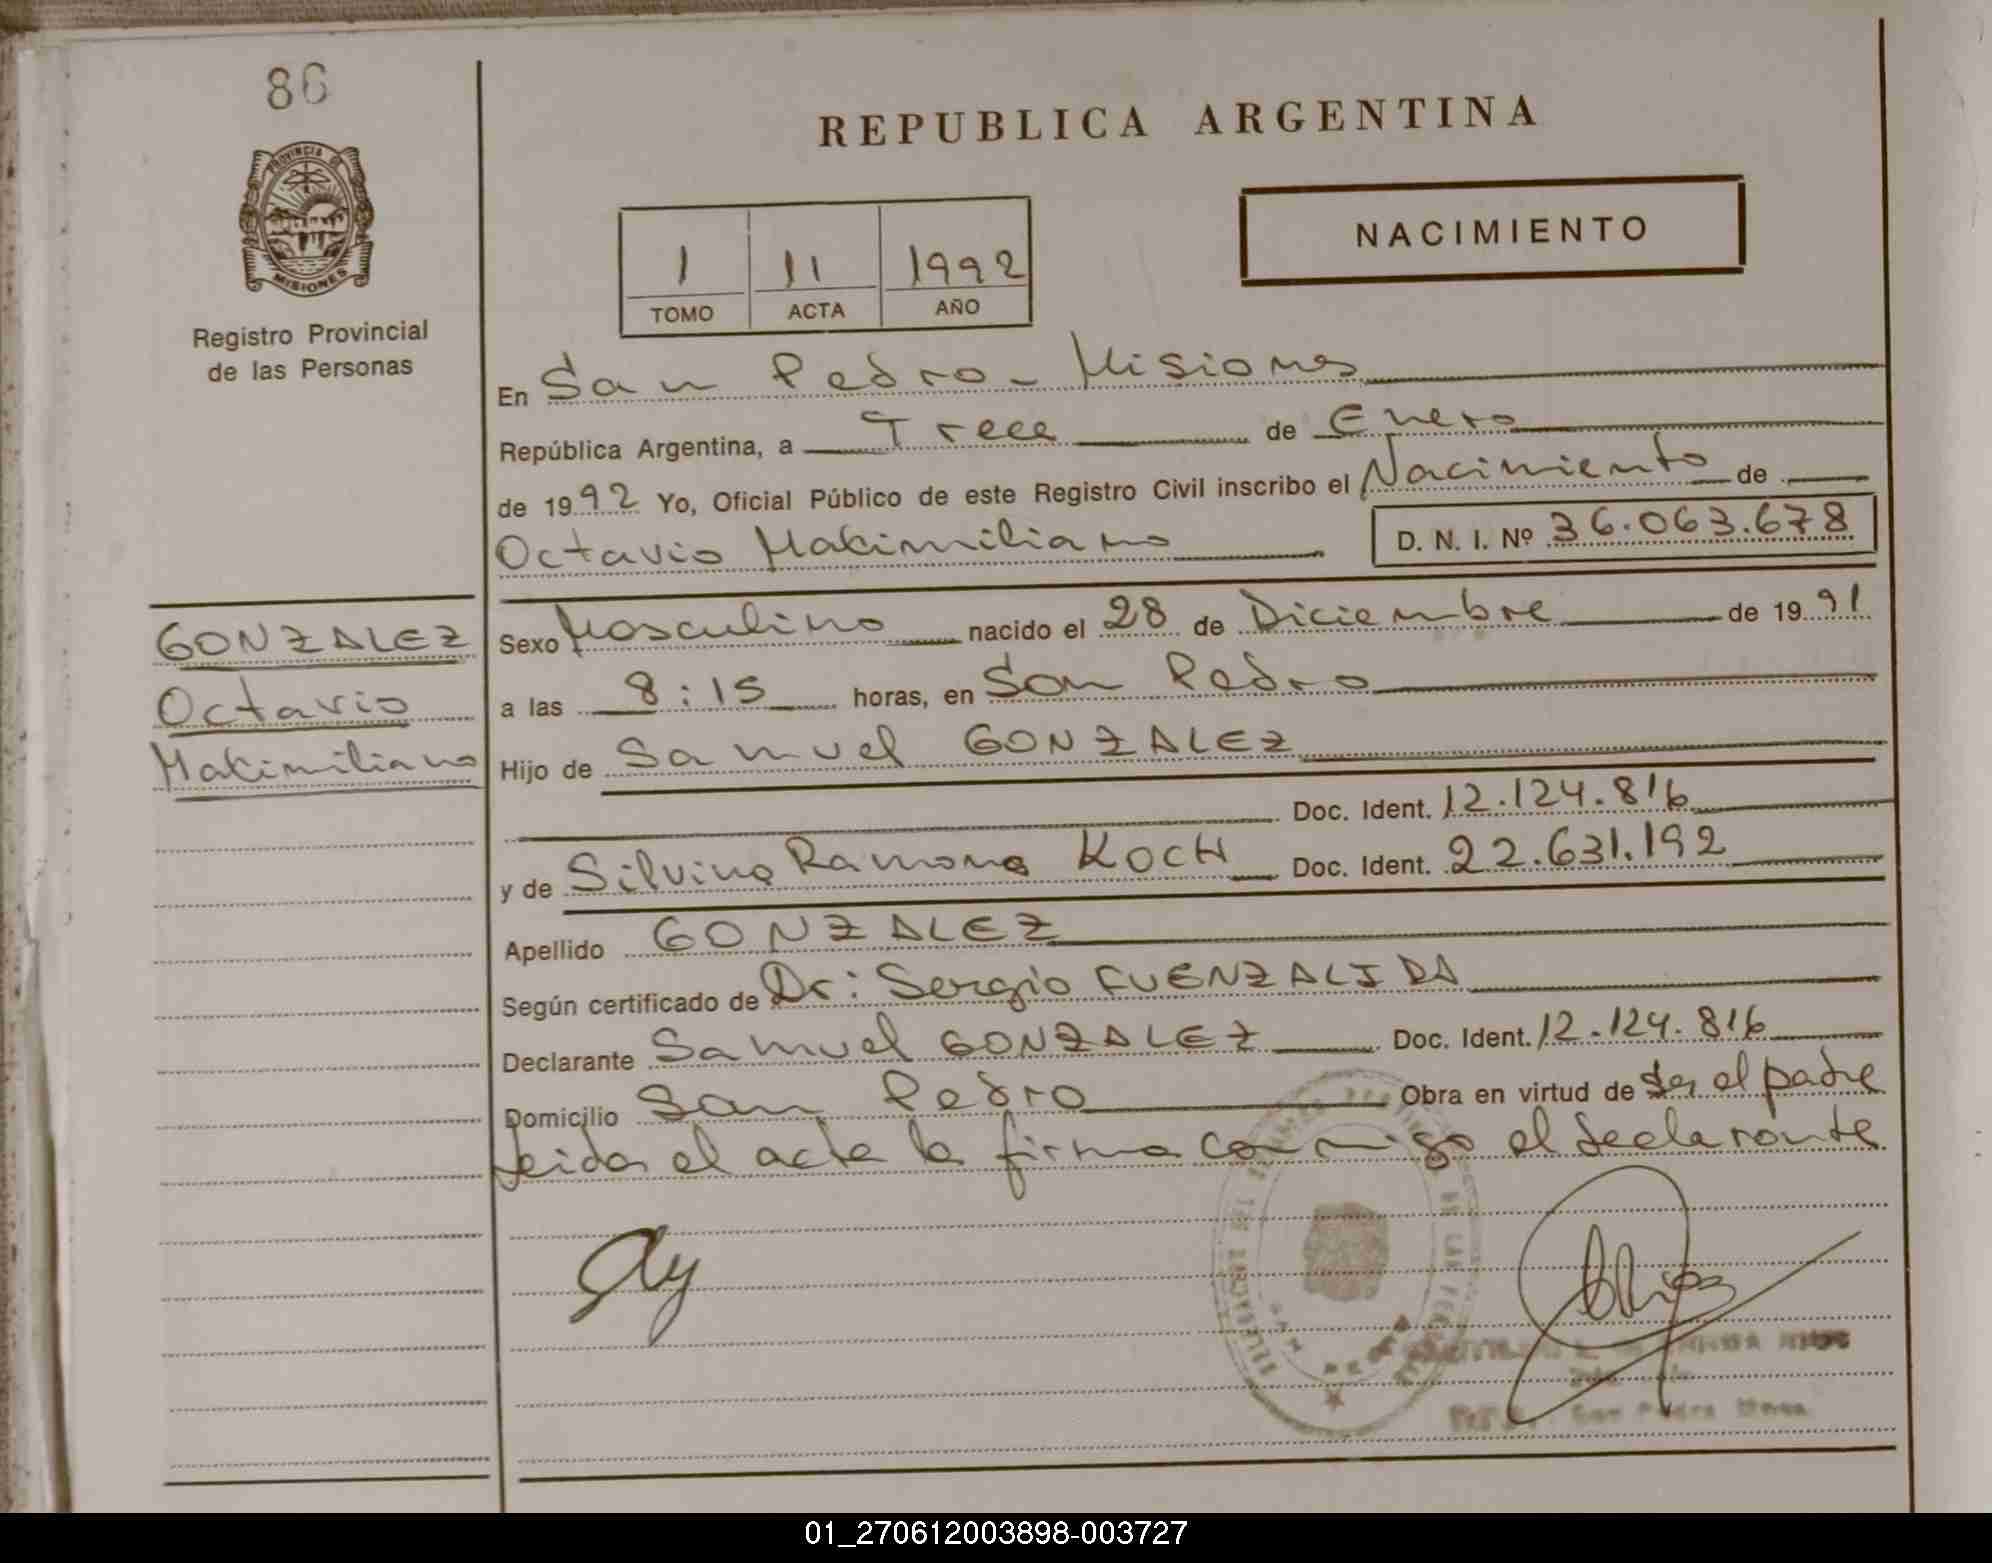 86
PROVINCIA DE
MISIONES
Registro Provincial
de las Personas
REPUBLICA ARGENTINA
NACIMIENTO
1 11 1992
TOMO ACTA AÑO
En San Pedro - Misiones
República Argentina, a Trece de Enero
de 1992 Yo, Oficial Público de este Registro Civil inscribo el Nacimiento de
Octavio Makimiliano D. N. I. Nº 36.063.678
GONZALEZ
Octavio
Makimiliano
Sexo Masculino nacido el 28 de Diciembre de 1991
a las 8:15 horas, en San Pedro
Hijo de Samuel GONZALEZ
Doc. Ident. 12.124.816
y de Silvina Ramona KOCH Doc. Ident. 22.631.192
Apellido GONZALEZ
Según certificado de Dr: Sergio FUENZALIDA
Declarante Samuel GONZALEZ Doc. Ident. 12.124.816
Domicilio San Pedro Obra en virtud de ser el padre
Leida el acta la firma conmigo el declarante
SAN PEDRO
San Pedro
01_270612003898-003727